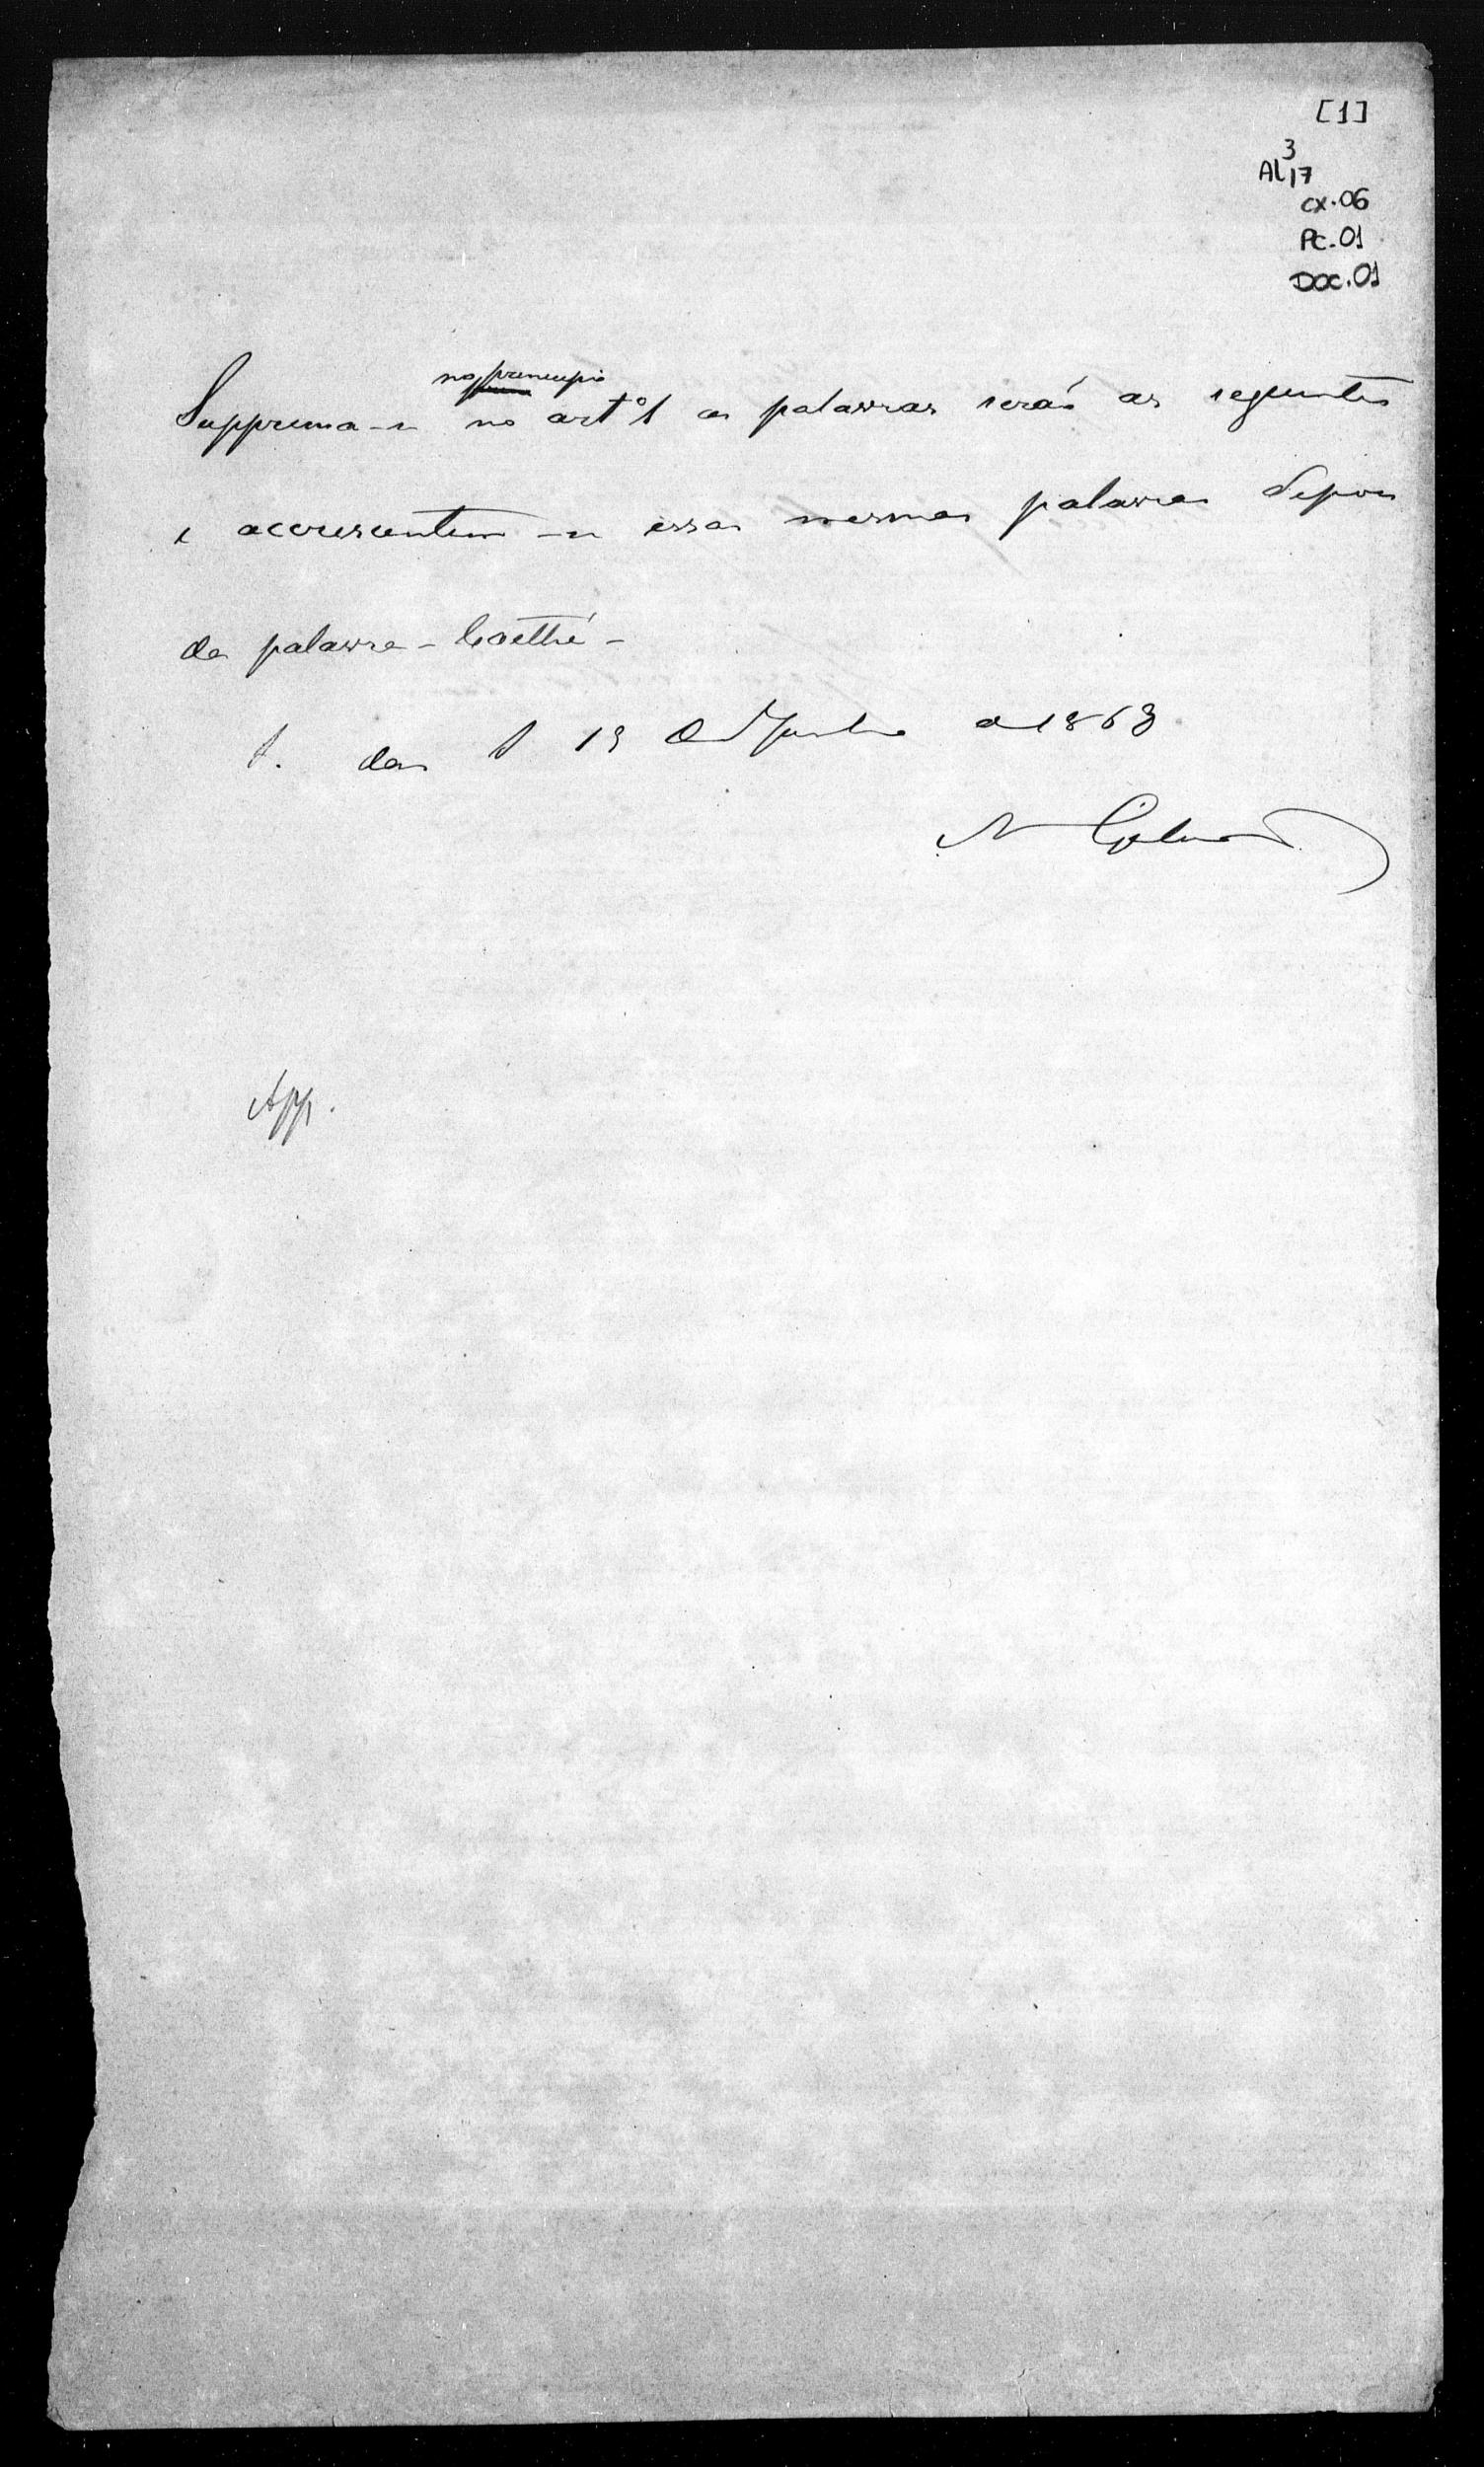 [1]
3
AL 17
CX.06
PC.01
DOC.01
no principio
Supprima-se no art.º 1 as palavras serão as seguintes
e accrescentem-se essas mesmas palavras depois
da palavra - Caethé -
S. das S. 19 de Junho de 1868
App.